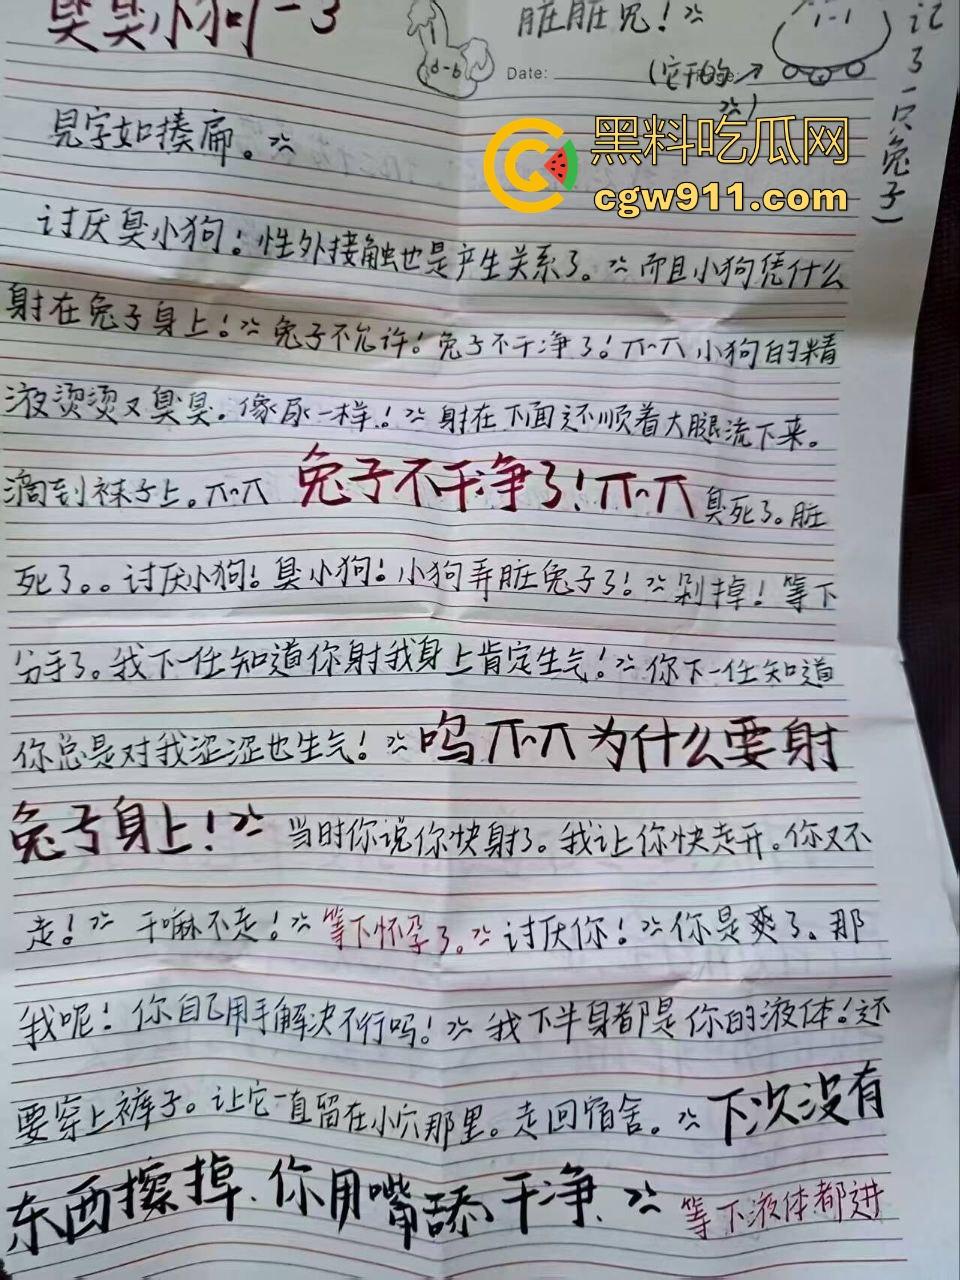 臭臭小狗-3
脏脏兔！
1-1
d-b
Date:
(它干的)
记了一只兔子)
黑料吃瓜网
cgw911.com
见字如揍扁。
讨厌臭小狗！性外接触也是产生关系了。而且小狗凭什么
射在兔子身上！兔子不允许！兔子不干净了！ㄫㄫ 小狗的精
液烫烫又臭臭。像尿一样！射在下面还顺着大腿流下来。
滴到袜子上。兔子不干净了！臭死了。脏
死了。。讨厌小狗！臭小狗！小狗弄脏兔子了！剁掉！等下
分手了。我下一任知道你射我身上肯定生气！你下一任知道
你总是对我涩涩也生气！呜 为什么要射
兔子身上！当时你说你快射了。我让你快走开。你又不
走！干嘛不走！等下怀孕了。讨厌你！你是爽了。那
我呢！你自己用手解决不行吗！我下半身都是你的液体！还
要穿上裤子。让它一直留在小穴那里。走回宿舍。下次没有
东西擦掉、你用嘴舔干净、等下液体都进